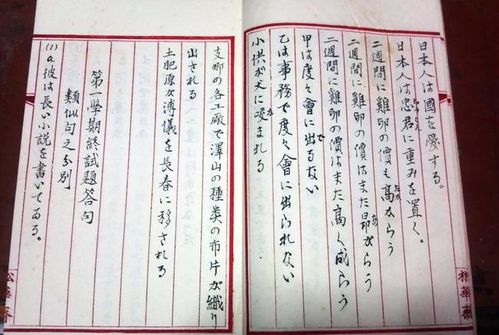 日本人は國を愛する。
日本人は忠君に重みを置く。
二週間に雞卵の價も高ならう
二週間に雞卵の價はまた昂がらう
二週間に雞卵の價はまた高く成らう
甲は度々會に出ない
乙は事務で度々會に出られない
小供が犬に咬まれる
支那の各工厰で澤山の種類の布片が織り
出される
土肥原が溥儀を長春に移される
第一學期終試題答句
類似句之分別
(1) a 彼は長い小説を書いてゐる。
松華齋